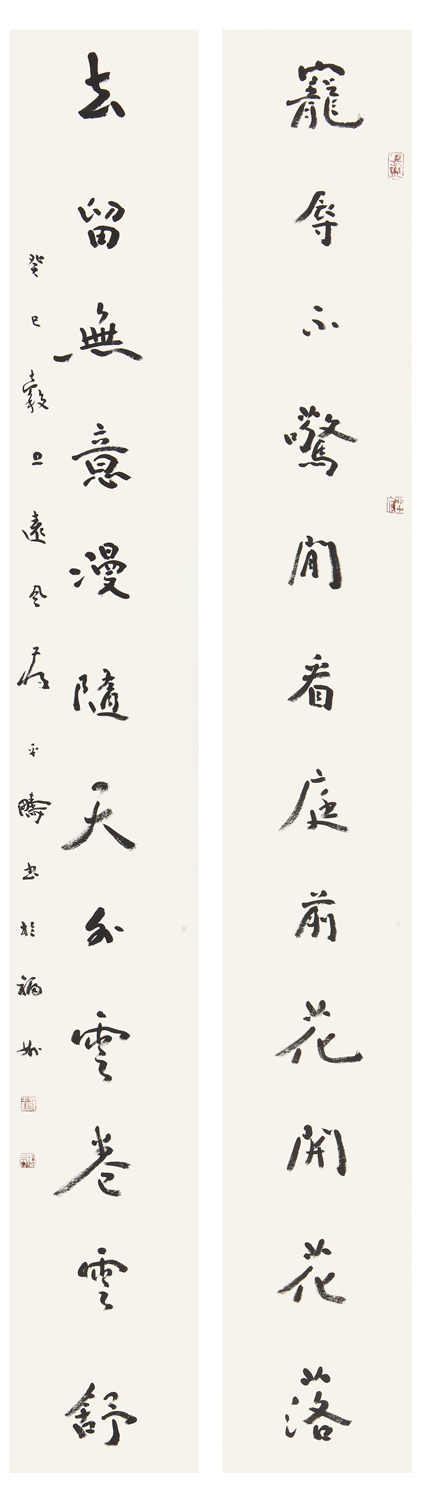 寵辱不驚閒看庭前花開花落
去留無意漫隨天外雲卷雲舒
癸巳穀旦遠風
平疇書於福州